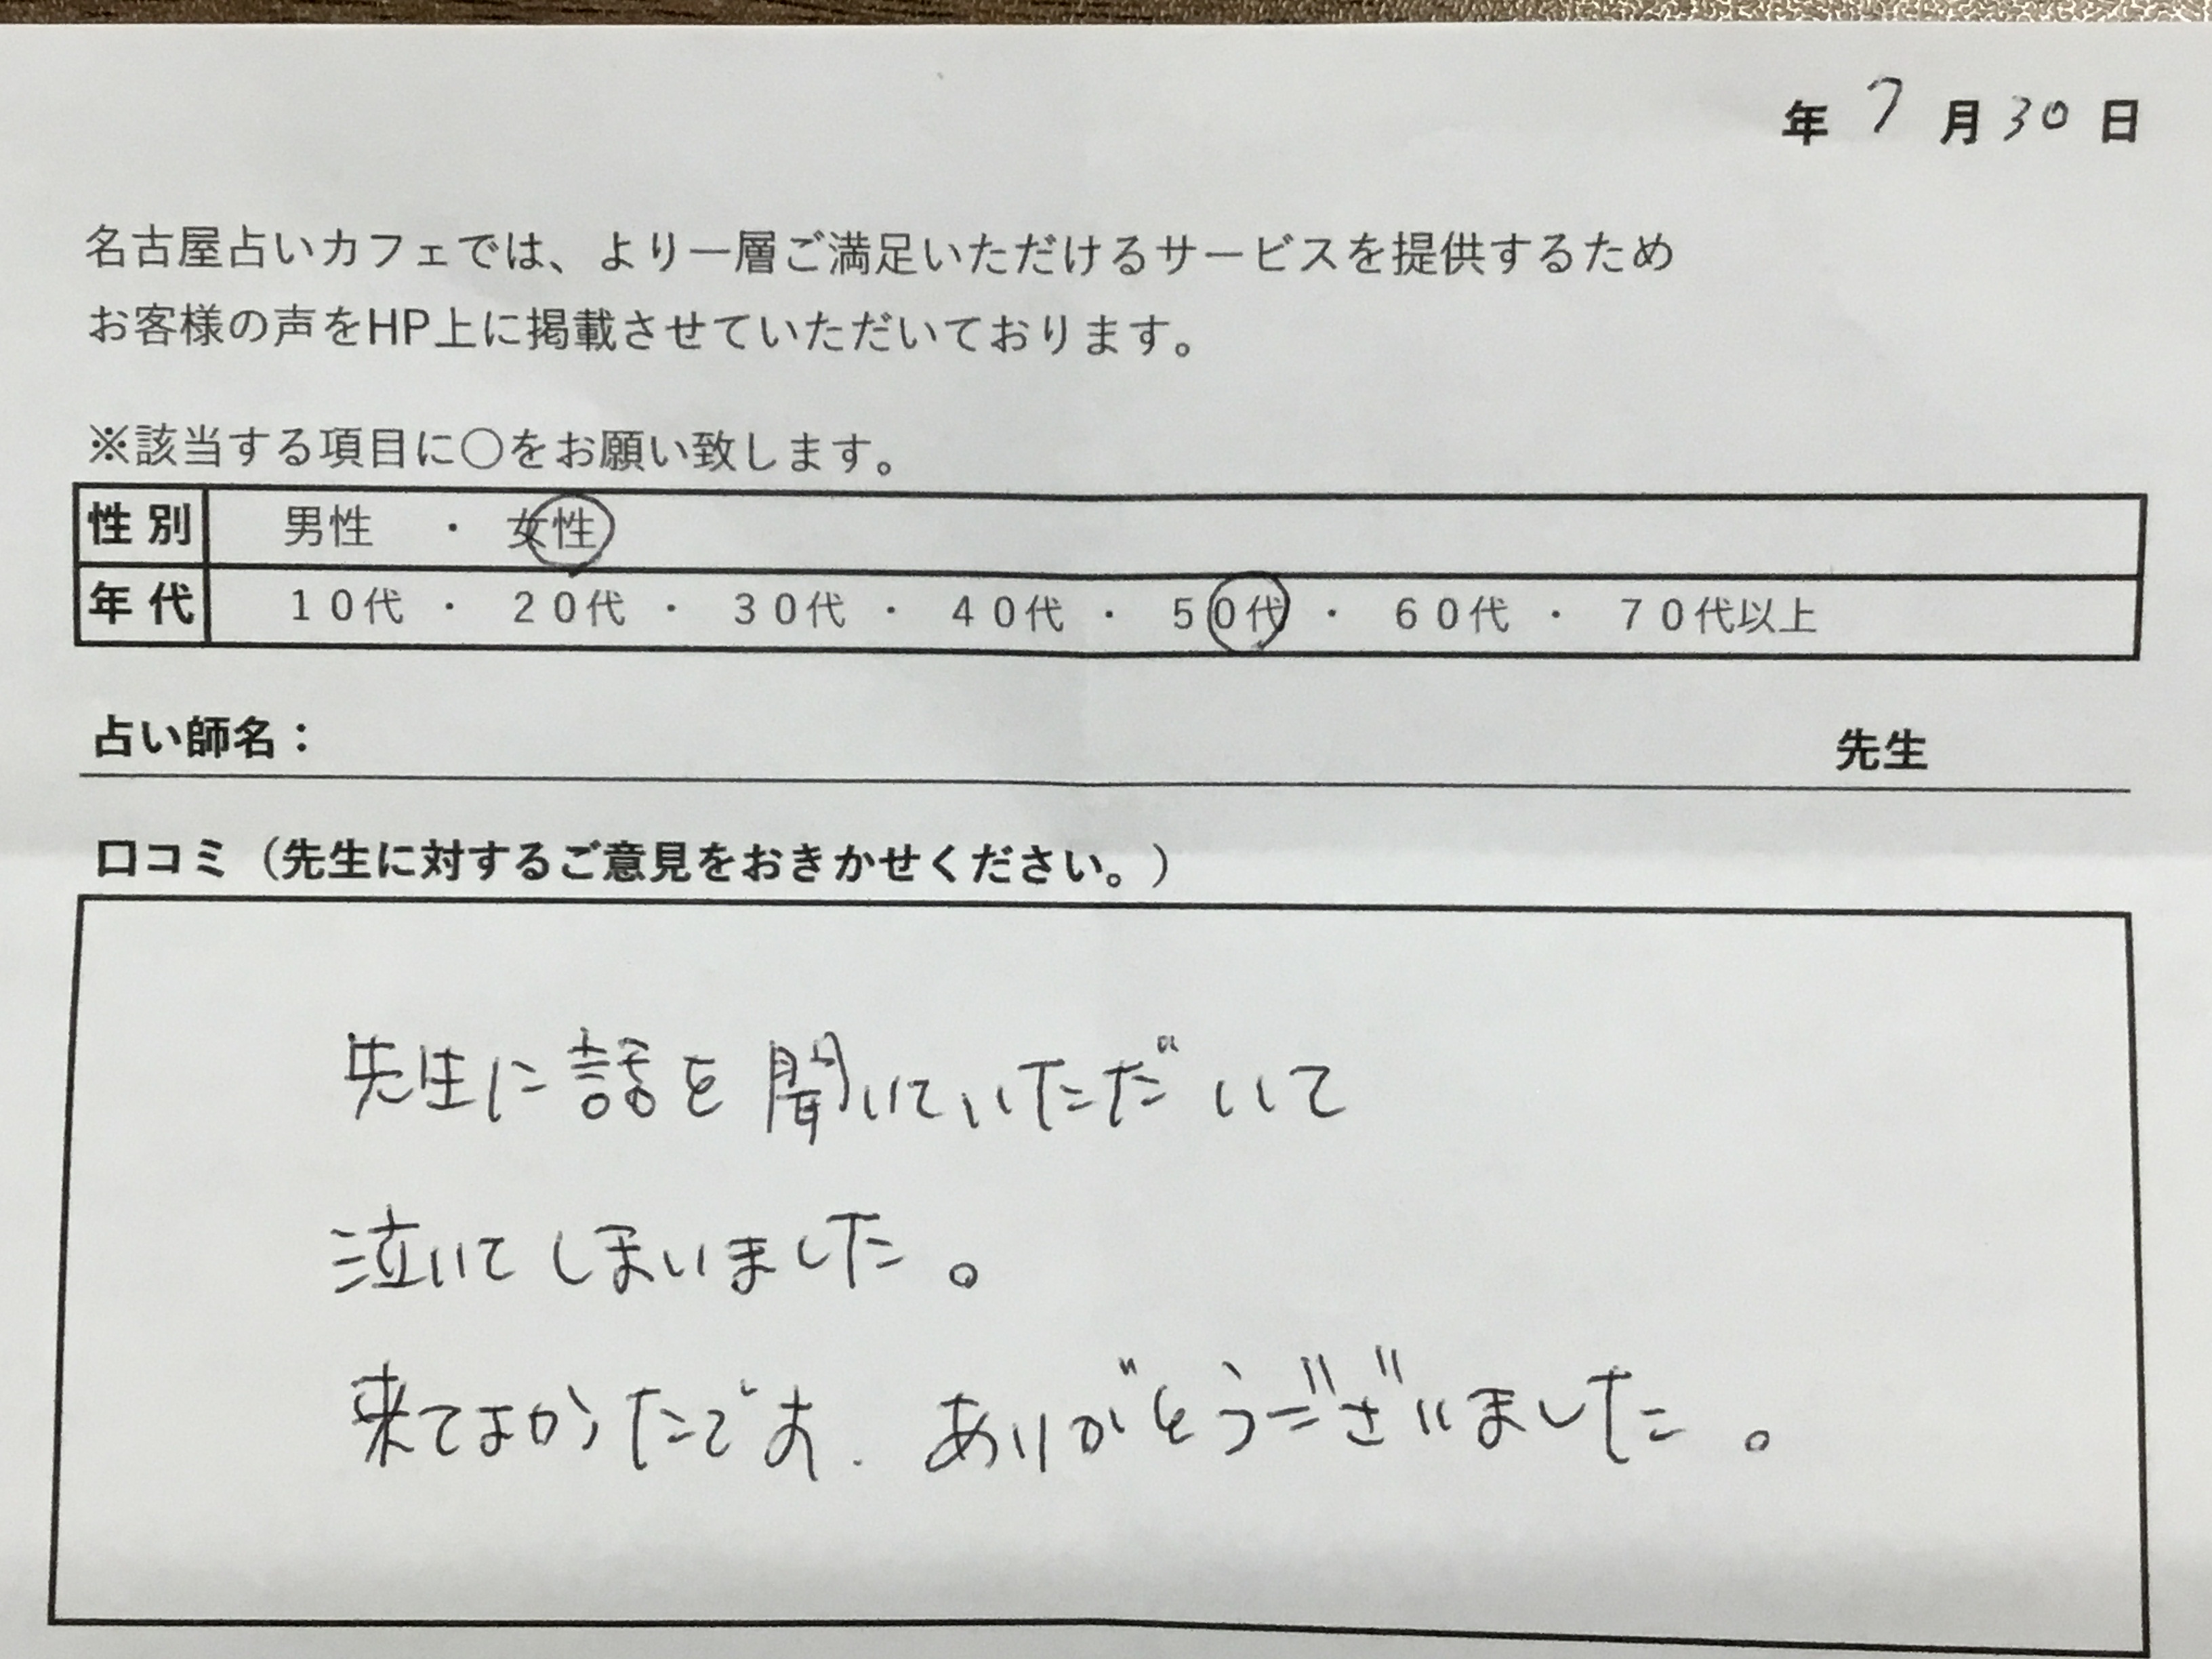 年 7 月 30 日
名古屋占いカフェでは、より一層ご満足いただけるサービスを提供するため
お客様の声をHP上に掲載させていただいております。
※該当する項目に〇をお願い致します。
性別 男性 ・ 女性
年代 10代 ・ 20代 ・ 30代 ・ 40代 ・ 50代 ・ 60代 ・ 70代以上
占い師名： 先生
口コミ（先生に対するご意見をおきかせください。）
先生に話を聞いていただいて
泣いてしまいました。
来てよかったです. ありがとうございました。